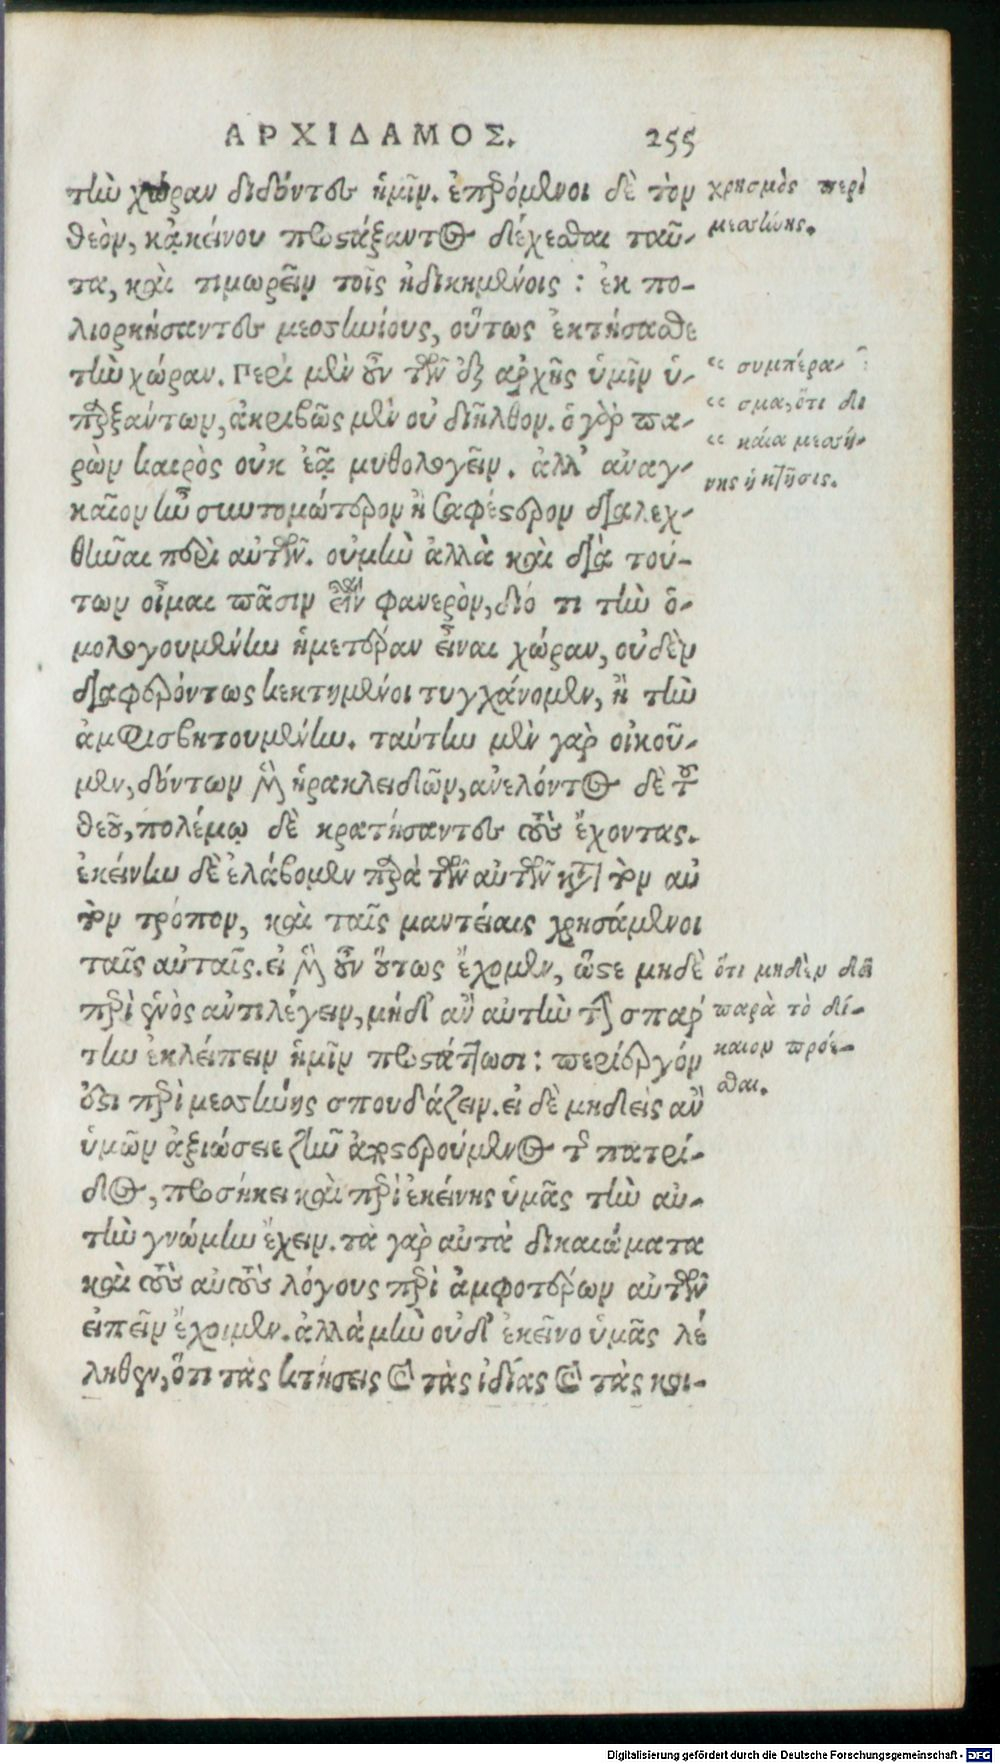 ΑΡΧΙΔΑΜΟΣ. 255
τὴν χώραν διδόντες ἡμῖν. ἐπερόμενοι δὲ τὸν
θεὸν, κᾀκείνου προστάξαντος δέχεσθαι ταῦ-
τα, καὶ τιμωρεῖν τοῖς ἠδικημένοις : ἐκ πο-
λιορκήσαντες μεσσηνίους, οὕτως ἐκτήσασθε
τὴν χώραν. Περὶ μὲν οὖν τῶν ἐξ ἀρχῆς ὑμῖν ὑ-
παρξάντων, ἀκριβῶς μὲν οὐ διῆλθον. ὁ γὰρ πα-
ρὼν καιρὸς οὐκ ἐᾷ μυθολογεῖν. ἀλλ' ἀναγ-
καῖον ἦν συντομώτερον ἢ σαφέστερον διαλεχ-
θῆναι περὶ αὐτῶν. οὐ μὴν ἀλλὰ καὶ διὰ τού-
των οἶμαι πᾶσιν εἶναι φανερὸν, διό τι τὴν ὁ-
μολογουμένην ἡμετέραν εἶναι χώραν, οὐδὲν
διαφερόντως κεκτημένοι τυγχάνομεν, ἢ τὴν
ἀμφισβητουμένην. ταύτην μὲν γὰρ οἰκοῦ-
μεν, δόντων μὲν ἡρακλειδῶν, ἀνελόντος δὲ τοῦ
θεοῦ, πολέμῳ δὲ κρατήσαντες τοὺς ἔχοντας.
ἐκείνην δὲ ἐλάβομεν παρὰ τῶν αὐτῶν καὶ τὸν αὐ
τὸν τρόπον, καὶ ταῖς μαντείαις χρησάμενοι
ταῖς αὐταῖς. εἰ μὲν οὖν οὕτως ἔχομεν, ὥστε μηδὲ
περὶ ἑνὸς ἀντιλέγειν, μήδ' ἂν αὐτὴν τὴν σπάρ
την ἐκλείπειν ἡμῖν προστάττωσι : περίεργόν
ἐστι περὶ μεσσήνης σπουδάζειν. εἰ δὲ μηδεὶς ἂν
ὑμῶν ἀξιώσειε ζῆν ἀποστερούμενος τῆς πατρί-
δος, προσήκει καὶ περὶ ἐκείνης ὑμᾶς τὴν αὐ-
τὴν γνώμην ἔχειν. τὰ γὰρ αὐτὰ δικαιώματα
καὶ τοὺς αὐτοὺς λόγους περὶ ἀμφοτέρων αὐτῶν
εἰπεῖν ἔχοιμεν. ἀλλὰ μὴν οὐδ' ἐκεῖνο ὑμᾶς λέ
ληθεν, ὅτι τὰς κτήσεις καὶ τὰς ἰδίας καὶ τὰς κοι-
χρησμὸς περὶ
μεσσήνης.
“ συμπέρα-
“ σμα, ὅτι δι
“ καία μεσσή-
νης ἡ κτῆσις.
ὅτι μηδὲν δεῖ
παρὰ τὸ δί-
καιον πρόε-
σθαι.
Digitalisierung gefördert durch die Deutsche Forschungsgemeinschaft - DFG